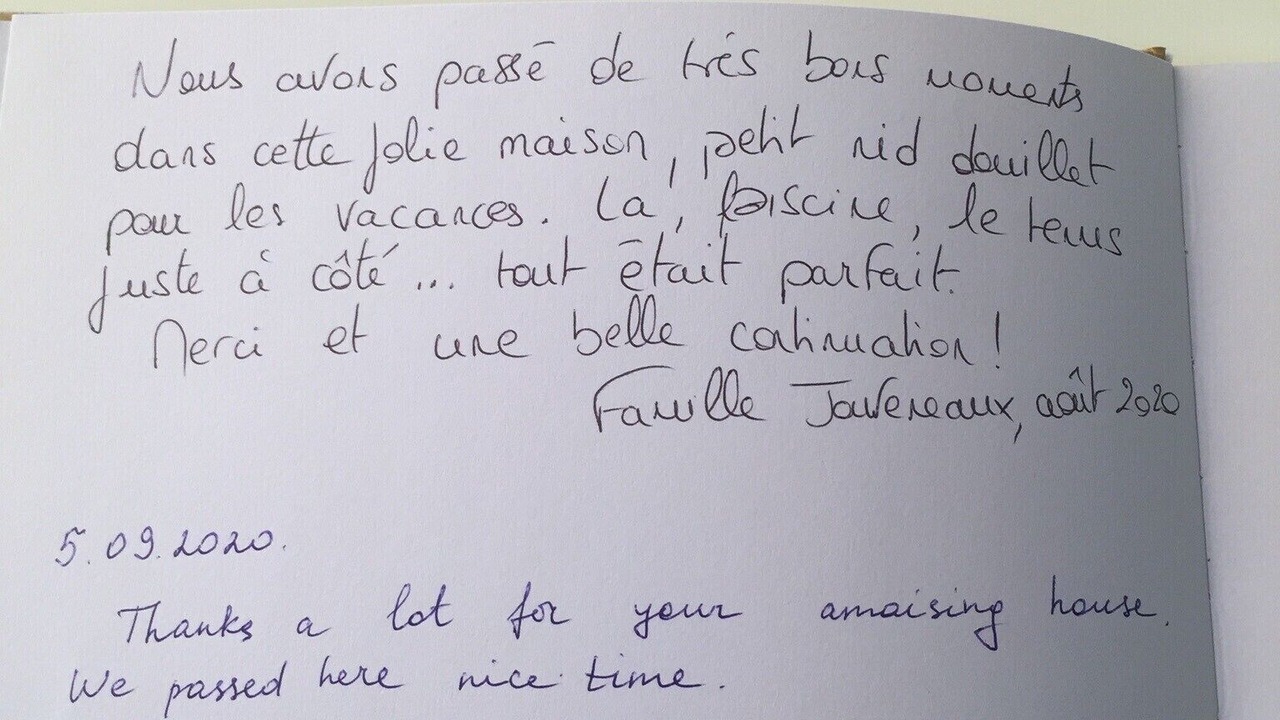 Nous avons passé de très bons moments
dans cette jolie maison, petit nid douillet
pour les vacances. La piscine, le tennis
juste à côté... tout était parfait.
Merci et une belle continuation!
Famille Jouveneaux, août 2020
5.09.2020.
Thanks a lot for your amaising house.
We passed here nice time.